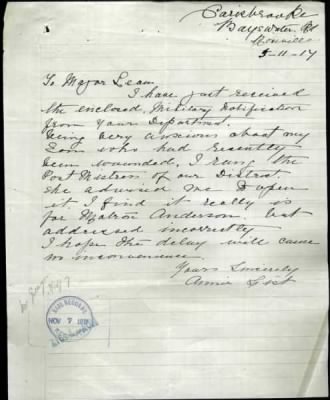 Carisbrooke
Bayswater Rd
5-11-17
To Major Lean
I have just received
the enclosed, Military Notification
from your Department.
Being very anxious about my
Son who had recently
been wounded, I rung the
Post Mistress of our District.
she advised me to open
it I find it really is
for Matron Anderson. but
addressed incorrectly
I hope the delay will cause
no inconvenience.
Yours Sincerely
Annie
BASE RECORDS
NOV 7